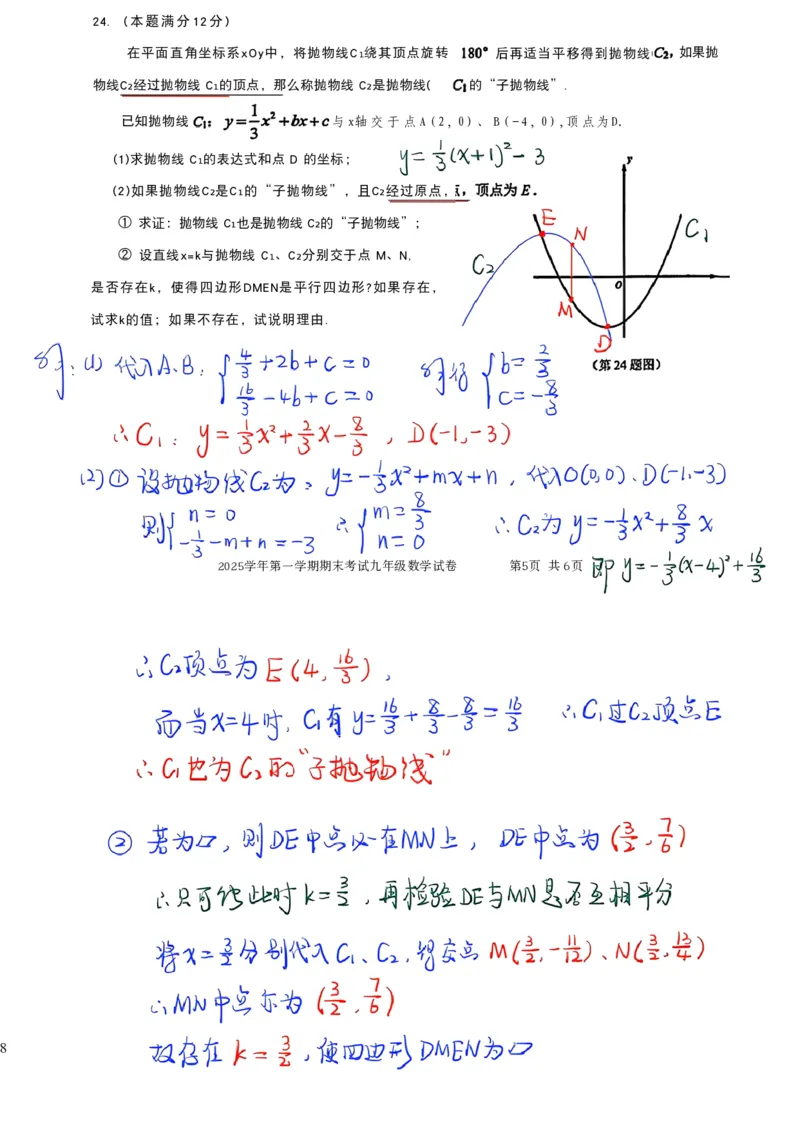 24. (本题满分12分)
在平面直角坐标系xOy中，将抛物线C₁绕其顶点旋转 180° 后再适当平移得到抛物线C₂，如果抛
物线C₂经过抛物线 C₁的顶点，那么称抛物线 C₂是抛物线( C₁的“子抛物线”.
已知抛物线 C₁: y=1/3x²+bx+c与x轴交于点A(2, 0)、B(-4, 0),顶点为D.
(1)求抛物线 C₁的表达式和点 D 的坐标; y=1/3(x+1)²-3
(2)如果抛物线C₂是C₁的“子抛物线”，且C₂经过原点，顶点为 E.
① 求证: 抛物线 C₁也是抛物线 C₂的“子抛物线”;
② 设直线x=k与抛物线 C₁、C₂分别交于点 M、N,
是否存在k，使得四边形DMEN是平行四边形?如果存在,
试求k的值; 如果不存在, 试说明理由.
E N C₁ y
C₂ O
M D
(第24题图)
解: (1) 代入A、B: { 4/3+2b+c=0 解得 { b=2/3
16/3-4b+c=0 c=-8/3
∴C₁: y=1/3x²+2/3x-8/3 , D(-1,-3)
(2)① 设抛物线C₂为: y=-1/3x²+mx+n , 代入O(0,0)、D(-1,-3)
则{ n=0 ∴{ m=8/3 ∴C₂为 y=-1/3x²+8/3x
-1/3-m+n=-3 n=0
2025学年第一学期期末考试九年级数学试卷 第5页 共6页 即 y=-1/3(x-4)²+16/3
∴C₂顶点为E(4, 16/3) ,
而当x=4时, C₁有 y=16/3+8/3-8/3=16/3 ∴C₁过C₂顶点E
∴C₁也为C₂的“子抛物线”
② 若为▱, 则DE中点必在MN上, DE中点为(3/2, 7/6)
∴只可能此时k=3/2 , 再检验DE与MN是否互相平分
将x=3/2分别代入C₁、C₂, 得交点 M(3/2,-11/12)、N(3/2, 13/4)
∴MN中点亦为(3/2, 7/6)
故存在 k=3/2 , 使四边形DMEN为▱
8